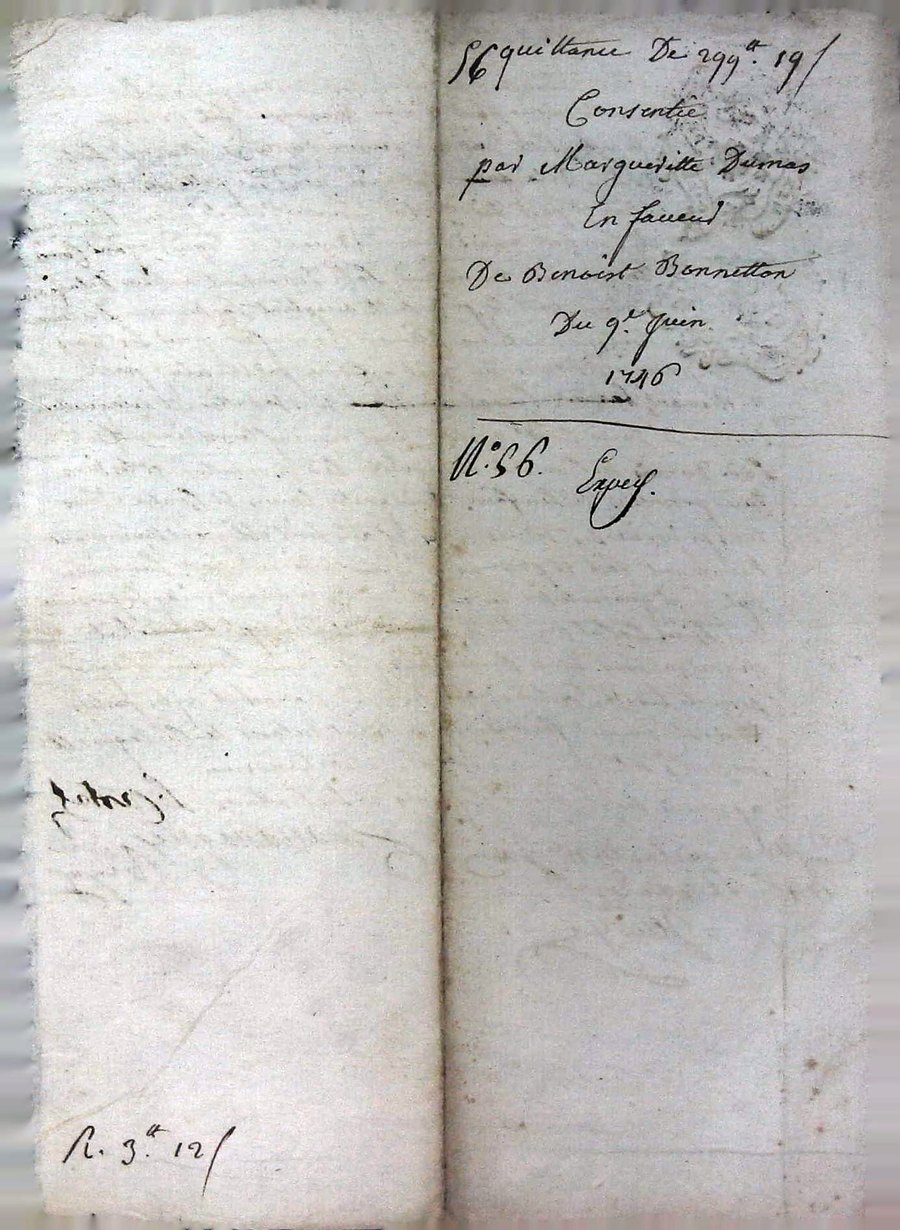 56 quittance De 299tt 19 s
Consentie
par Margueritte Dumas
En faveur
De Benoist Bonnetton
Du 9e Juin
1746
N.° 56.
R. 3tt 12 s